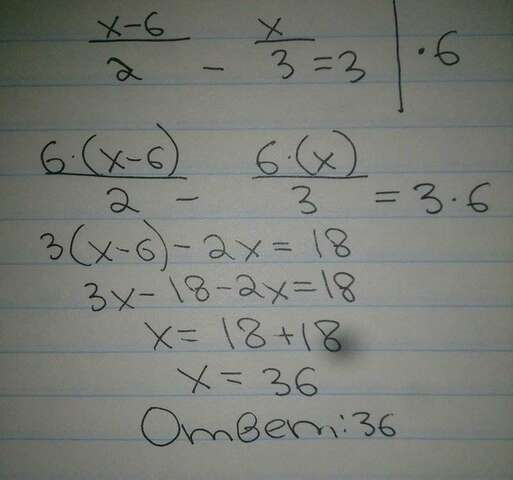 (x-6)/2 - x/3 = 3 | ·6
6·(x-6)/2 - 6·(x)/3 = 3·6
3(x-6)-2x=18
3x-18-2x=18
x=18+18
x=36
Ответ:36